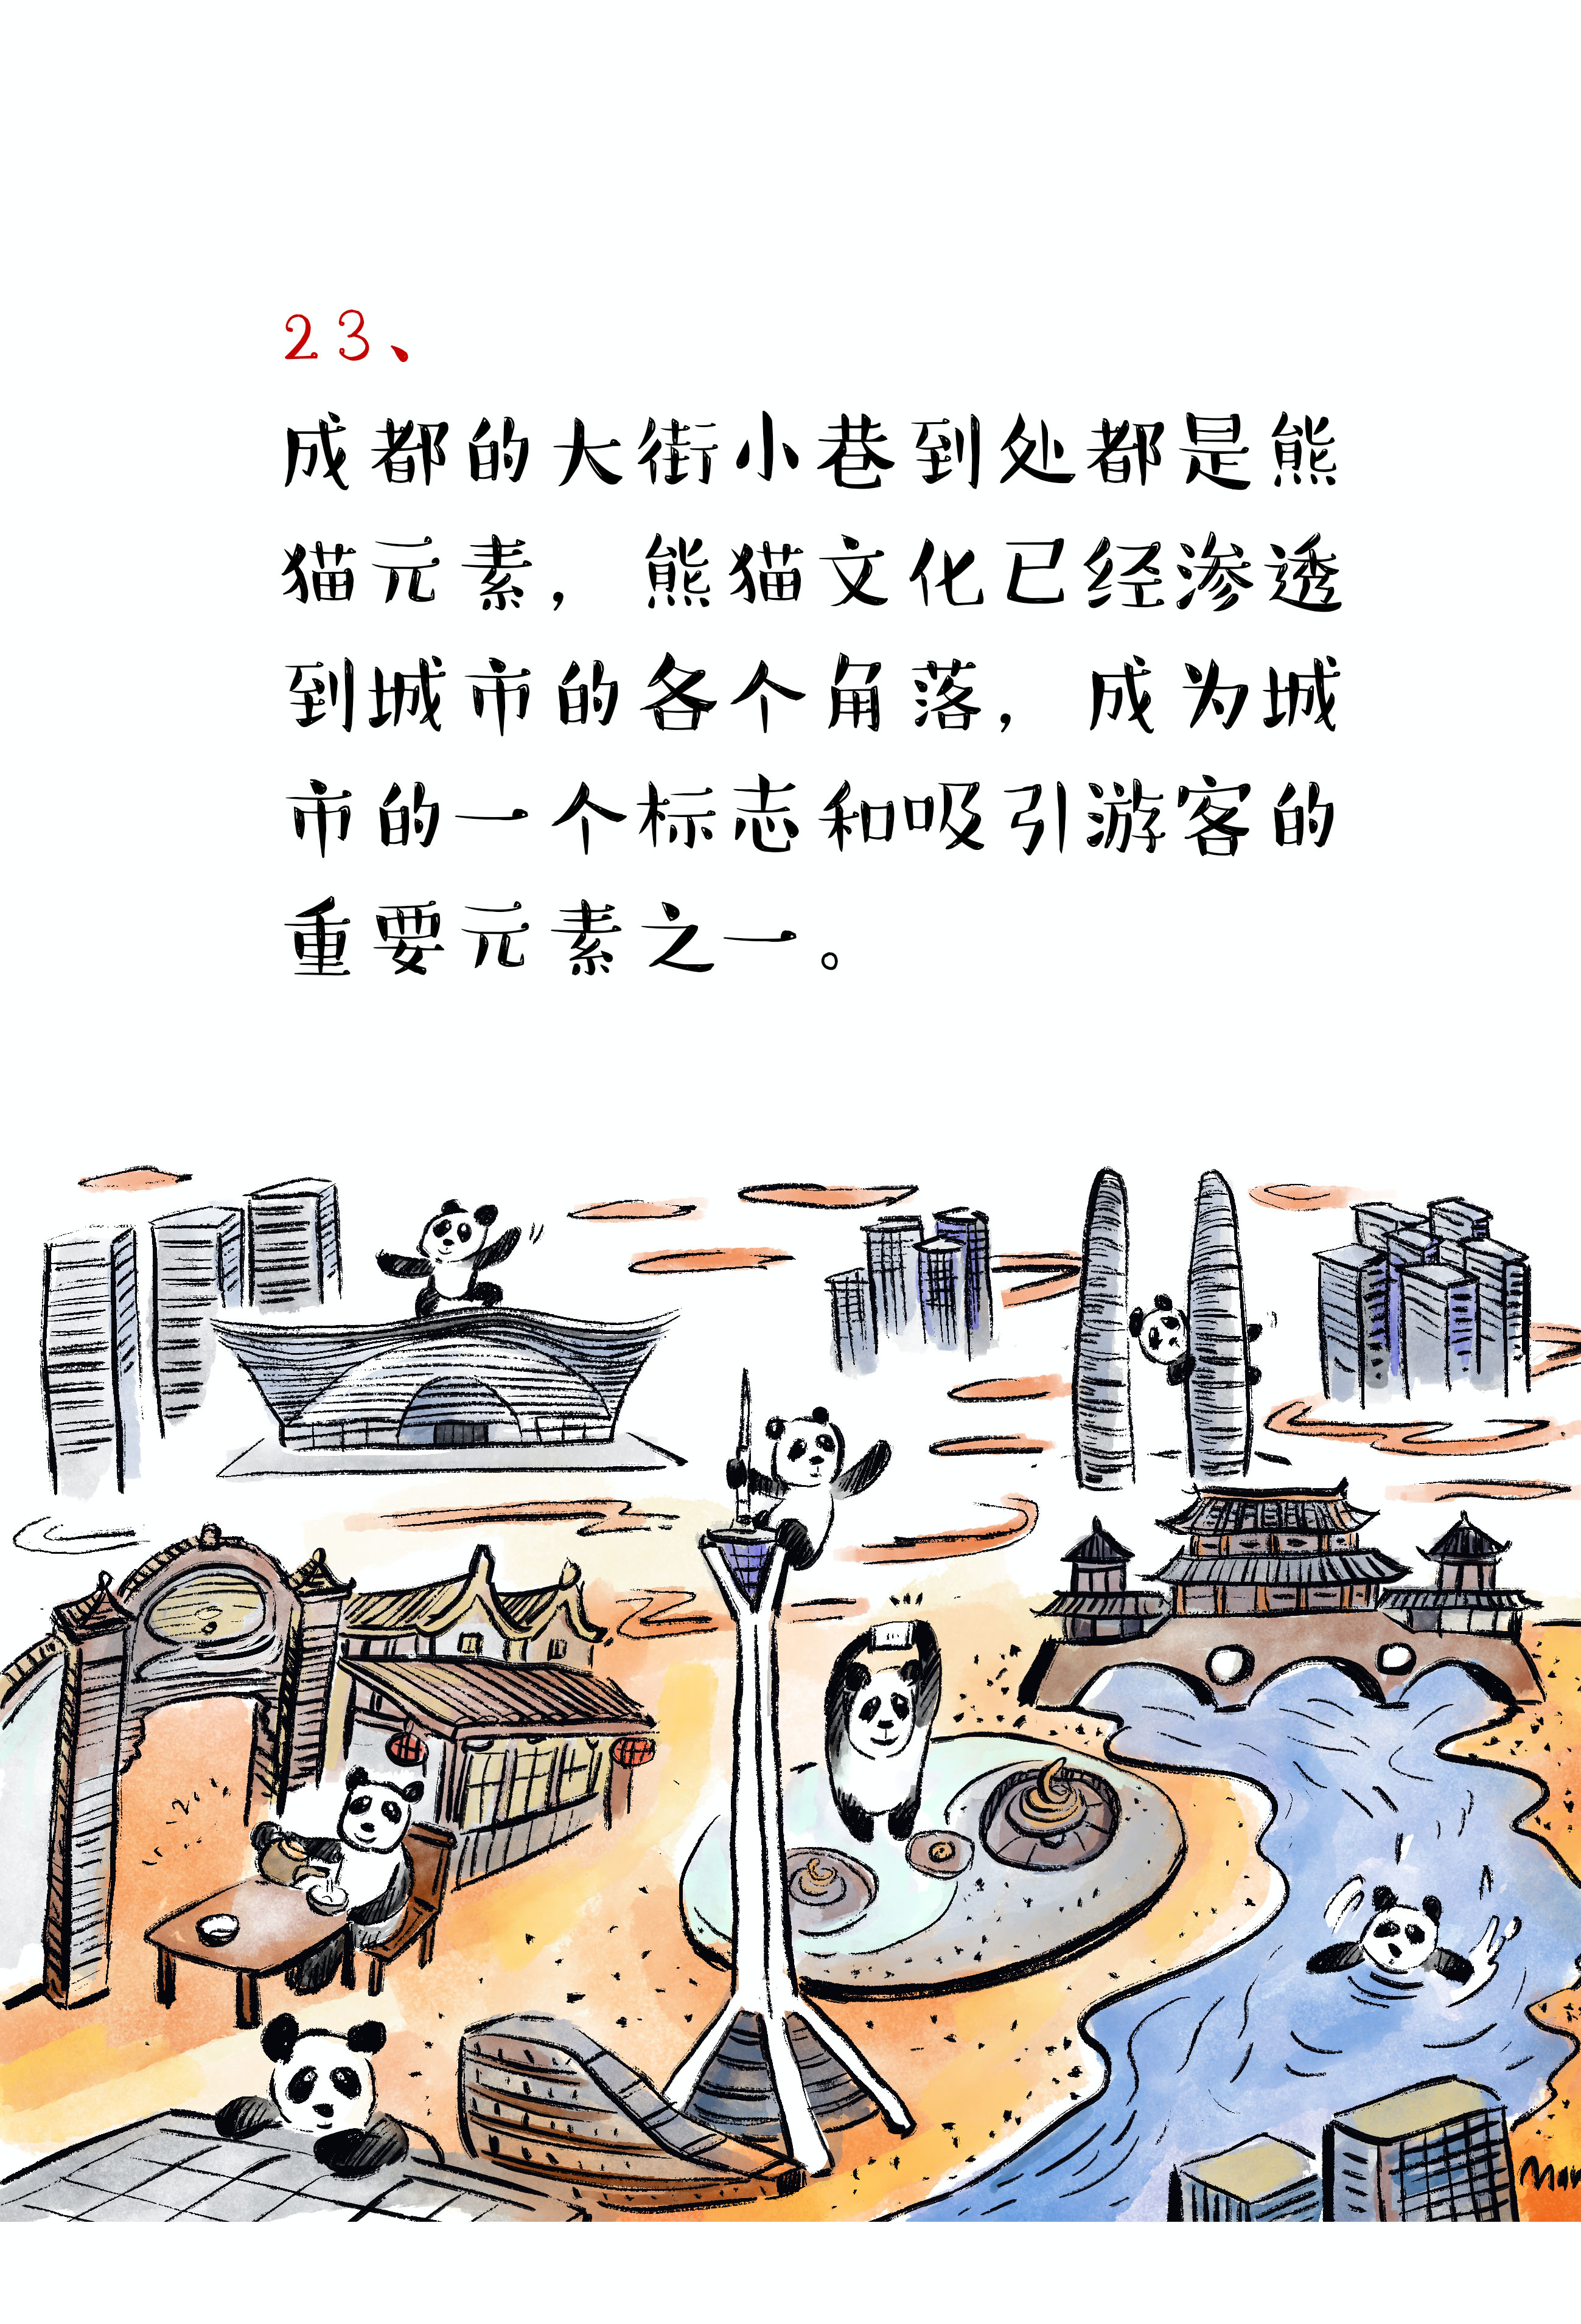 23、
成都的大街小巷到处都是熊
猫元素，熊猫文化已经渗透
到城市的各个角落，成为城
市的一个标志和吸引游客的
重要元素之一。